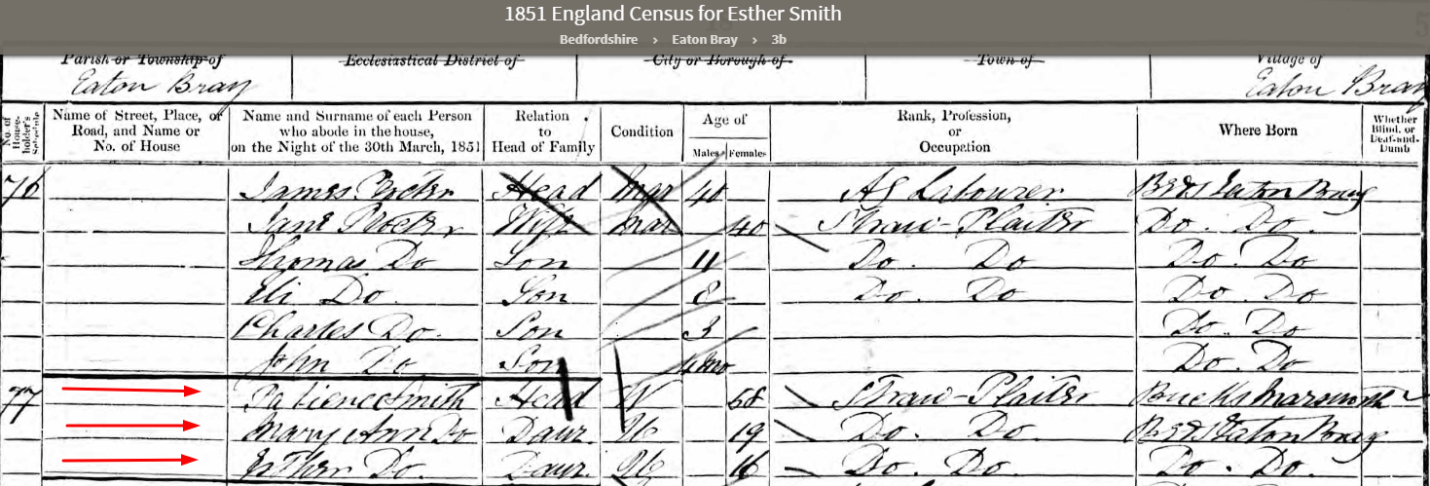 1851 England Census for Esther Smith
Bedfordshire > Eaton Bray > 3b
Parish or Township of Ecclesiastical District of City or Borough of Town of Village of
Eaton Bray Eaton Bray
No. of House-holder's Schedule
Name of Street, Place, or Road, and Name or No. of House
Name and Surname of each Person who abode in the house, on the Night of the 30th March, 1851
Relation to Head of Family
Condition
Age of
Males Females
Rank, Profession, or Occupation
Where Born
Whether Blind, or Deaf-and-Dumb
76 James Head Mar 40 Ag Labourer Beds Eaton Bray
Jane Wife Mar 40 Straw-Plaiter Do. Do.
Thomas Do Son 11 Do. Do Do. Do
Eli Do. Son 8 Do. Do Do. Do
Charles Do. Son 3 Do. Do
John Do Son 4mo Do. Do
77 Patience Smith Head W 58 Straw-Plaiter Bucks Marsworth
Mary Ann Do Daur. U 19 Do. Do. Beds Eaton Bray
Esther Do. Daur. U 16 Do. Do. Do. Do